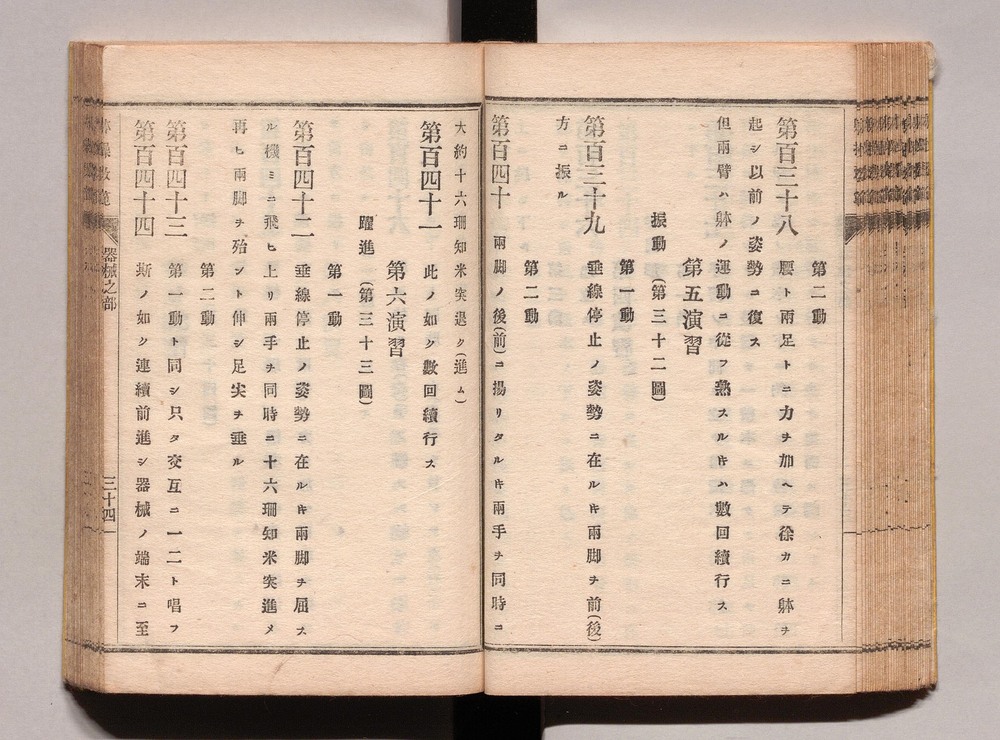 第二動
第百三十八 腰ト兩足トニ力ヲ加ヘテ徐カニ躰ヲ
起シ以前ノ姿勢ニ復ス
但兩臂ハ躰ノ運動ニ從フ熟スルキハ數回續行ス
第五演習
振動(第三十二圖)
第一動
第百三十九 垂線停止ノ姿勢ニ在ルキ兩脚ヲ前(後)
方ニ振ル
第二動
第百四十 兩脚ノ後(前)ニ揚リタルキ兩手ヲ同時ニ
大約十六珊知米突退ク(進ム)
第百四十一 此ノ如ク數回續行ス
第六演習
躍進(第三十三圖)
第一動
第百四十二 垂線停止ノ姿勢ニ在ルキ兩脚ヲ屈ス
ル機ミニ飛ヒ上リ兩手ヲ同時ニ十六珊知米突進メ
再ヒ兩脚ヲ殆ント伸シ足尖ヲ垂ル
第二動
第百四十三 第一動ト同シ只タ交互ニ一二ト唱フ
第百四十四 斯ノ如ク連續前進シ器械ノ端末ニ至
器械之部
三十四